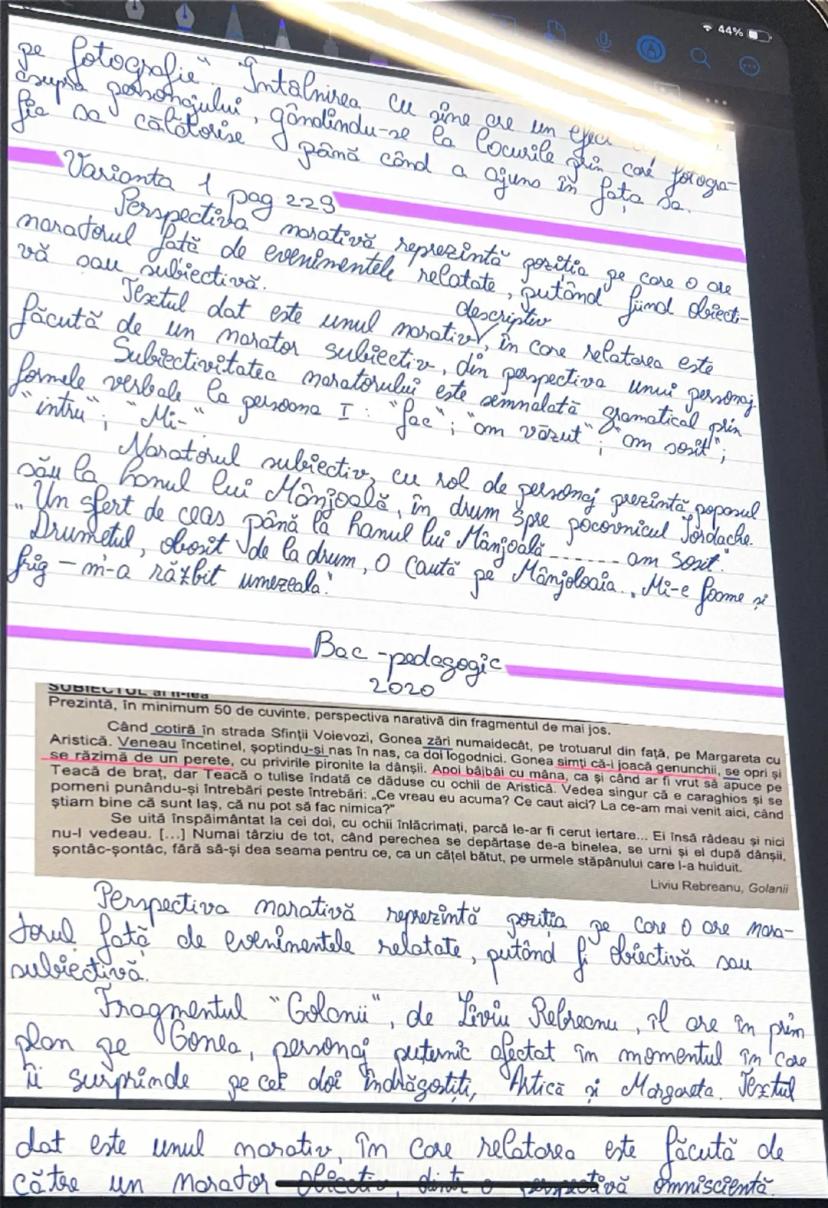 44%
pe fotografie". Întâlnirea cu sine are un efect
asupra personajului, gândindu-se la locurile prin care fotogra-
fia sa călătorise până când a ajuns în fața sa.
Varianta 1 pag 229
Perspectiva narativă reprezintă poziția pe care o are
naratorul față de evenimentele relatate, putând fiind obiecti-
vă sau subiectivă.
descriptiv
Textul dat este unul narativ, în care relatarea este
făcută de un narator subiectiv, din perspectiva unui personaj.
Subiectivitatea naratorului este semnalată gramatical prin
formele verbale la persoana I: "fac"; "am văzut"; "am sosit";
"intru"; "Mi-"
Naratorul subiectiv, cu rol de personaj prezintă poposul
său la hanul lui Mânjoală, în drum spre pocovnicul Iordache.
„Un sfert de ceas până la hanul lui Mânjoală ------ am sosit."
Drumețul, obosit de la drum, o caută pe Mânjoloaia. „Mi-e foame și
frig – m-a răzbit umezeala."
Bac - pedagogic
2020
SUBIECTUL al II-lea
Prezintă, în minimum 50 de cuvinte, perspectiva narativă din fragmentul de mai jos.
Când cotiră în strada Sfinții Voievozi, Gonea zări numaidecât, pe trotuarul din față, pe Margareta cu
Aristică. Veneau încetinel, șoptindu-și nas în nas, ca doi logodnici. Gonea simți că-i joacă genunchii, se opri și
se răzimă de un perete, cu privirile pironite la dânșii. Apoi bâjbâi cu mâna, ca și când ar fi vrut să apuce pe
Teacă de braț, dar Teacă o tulise îndată ce dăduse cu ochii de Aristică. Vedea singur că e caraghios și se
pomeni punându-și întrebări peste întrebări: „Ce vreau eu acuma? Ce caut aici? La ce-am mai venit aici, când
știam bine că sunt laș, că nu pot să fac nimica?"
Se uită înspăimântat la cei doi, cu ochii înlăcrimați, parcă le-ar fi cerut iertare... Ei însă râdeau și nici
nu-l vedeau. [...] Numai târziu de tot, când perechea se depărtase de-a binelea, se urni și el după dânșii,
șontâc-șontâc, fără să-și dea seama pentru ce, ca un cățel bătut, pe urmele stăpânului care l-a huiduit.
Liviu Rebreanu, Golanii
Perspectiva narativă reprezintă poziția pe care o are nara-
torul față de evenimentele relatate, putând fi obiectivă sau
subiectivă.
Fragmentul "Golanii", de Liviu Rebreanu, îl are în prim
plan pe Gonea, personaj puternic afectat în momentul în care
îi surprinde pe cei doi îndrăgostiți, Artică și Margareta. Textul
dat este unul narativ, în care relatarea este făcută de
către un narator obiectiv, dintr-o perspectivă omniscientă.